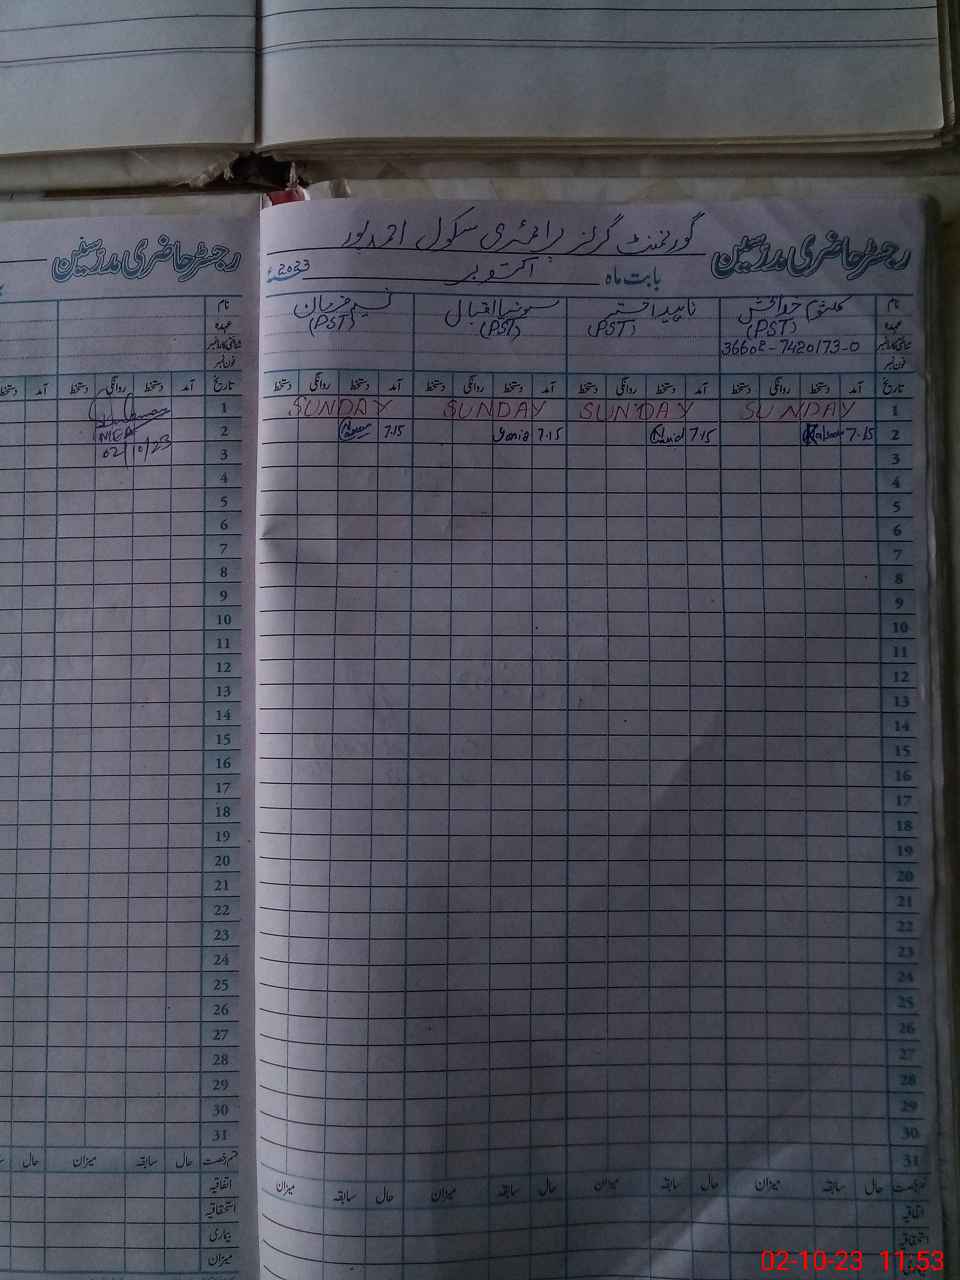 رجسٹر حاضری مدرسین
گورنمنٹ گرلز پرائمری سکول احمدپور
بابت ماہ اکتوبر 2023ء
رجسٹر حاضری مدرسین
نام کلثوم ناہید اختر سونیا اقبال
عہدہ (PST) (PST) (PST) (PST)
شناختی کارڈ نمبر 36602-7420173-0
فون نمبر
تاریخ آمد دستخط روانگی دستخط آمد دستخط روانگی دستخط آمد دستخط روانگی دستخط آمد دستخط روانگی دستخط
1 SUNDAY SUNDAY SUNDAY SUNDAY
2 7.15 7.15 7.15 Sonia 7.15
3
4
5
6
7
8
9
10
11
12
13
14
15
16
17
18
19
20
21
22
23
24
25
26
27
28
29
30
31
قسم رخصت حال سابقہ میزان حال سابقہ میزان حال سابقہ میزان حال سابقہ میزان
اتفاقیہ
استحقاقیہ
نام
عہدہ
شناختی کارڈ نمبر
فون نمبر
تاریخ آمد دستخط روانگی دستخط آمد دستخط
1
2 MEA
3 02/10/23
4
5
6
7
8
9
10
11
12
13
14
15
16
17
18
19
20
21
22
23
24
25
26
27
28
29
30
31
قسم رخصت حال سابقہ میزان حال
اتفاقیہ
استحقاقیہ
بیماری
میزان
02-10-23 11:53